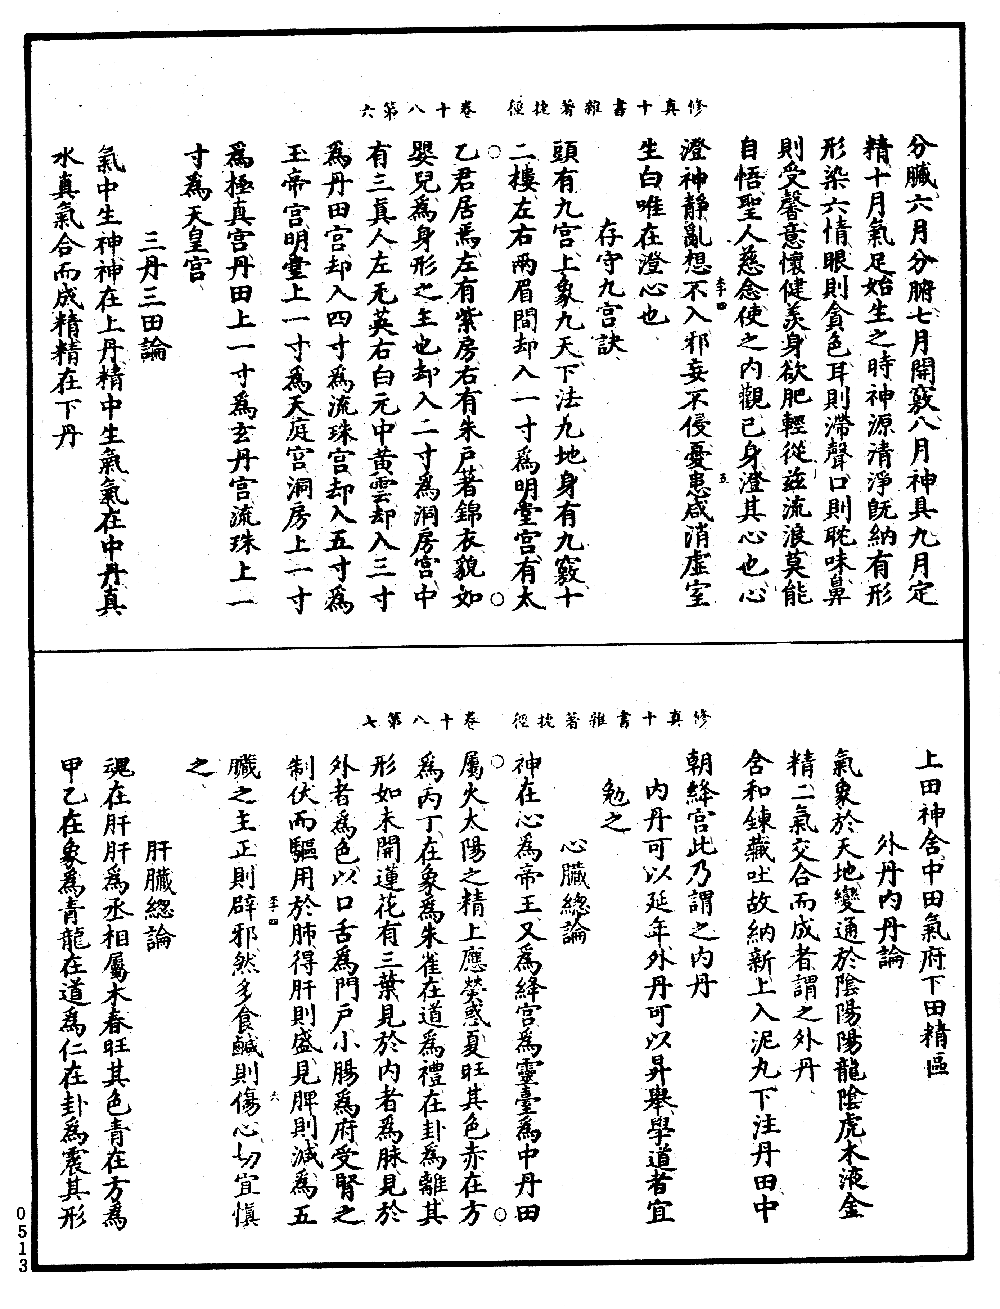 修真十書雜著捷徑　卷十八第六
分臟六月分腑七月開竅八月神具九月定
精十月氣足始生之時神源清淨旣納有形
形染六情眼則貪色耳則滯聲口則耽味鼻
則受馨意懷健羨身欲肥輕從茲流浪莫能
自悟聖人慈念使之內觀己身澄其心也心
李四　五
澄神靜亂想不入邪妄不侵憂患咸消虛室
生白唯在澄心也
存守九宮訣
頭有九宮上象九天下法九地身有九竅十
二樓左右兩眉間却入一寸爲明堂宮有太
乙君居焉左有紫房右有朱戶著錦衣貌如
嬰兒爲身形之主也却入二寸爲洞房宮中
有三眞人左无英右白元中黃雲却入三寸
爲丹田宮却入四寸爲流珠宮却入五寸爲
玉帝宮明堂上一寸爲天庭宮洞房上一寸
爲極真宮丹田上一寸爲玄丹宮流珠上一
寸爲天皇宮
三丹三田論
氣中生神神在上丹精中生氣氣在中丹真
水真氣合而成精精在下丹
修真十書雜著捷徑　卷十八第七
上田神舍中田氣府下田精區
外丹內丹論
氣象於天地變通於陰陽陽龍陰虎木液金
精二氣交合而成者謂之外丹
含和鍊藏吐故納新上入泥丸下注丹田中
朝絳宮此乃謂之內丹
內丹可以延年外丹可以昇舉學道者宜
勉之
心臟總論
神在心爲帝王又爲絳宮爲靈臺爲中丹田
屬火太陽之精上應熒惑夏旺其色赤在方
爲丙丁在象爲朱雀在道爲禮在卦爲離其
形如未開蓮花有三葉見於內者爲脉見於
外者爲色以口舌爲門戶小腸爲府受腎之
制伏而驅用於肺得肝則盛見脾則減爲五
李四　六
臟之主正則辟邪然多食鹹則傷心切宜愼
之
肝臟總論
魂在肝肝爲丞相屬木春旺其色青在方爲
甲乙在象爲青龍在道爲仁在卦爲震其形
0513